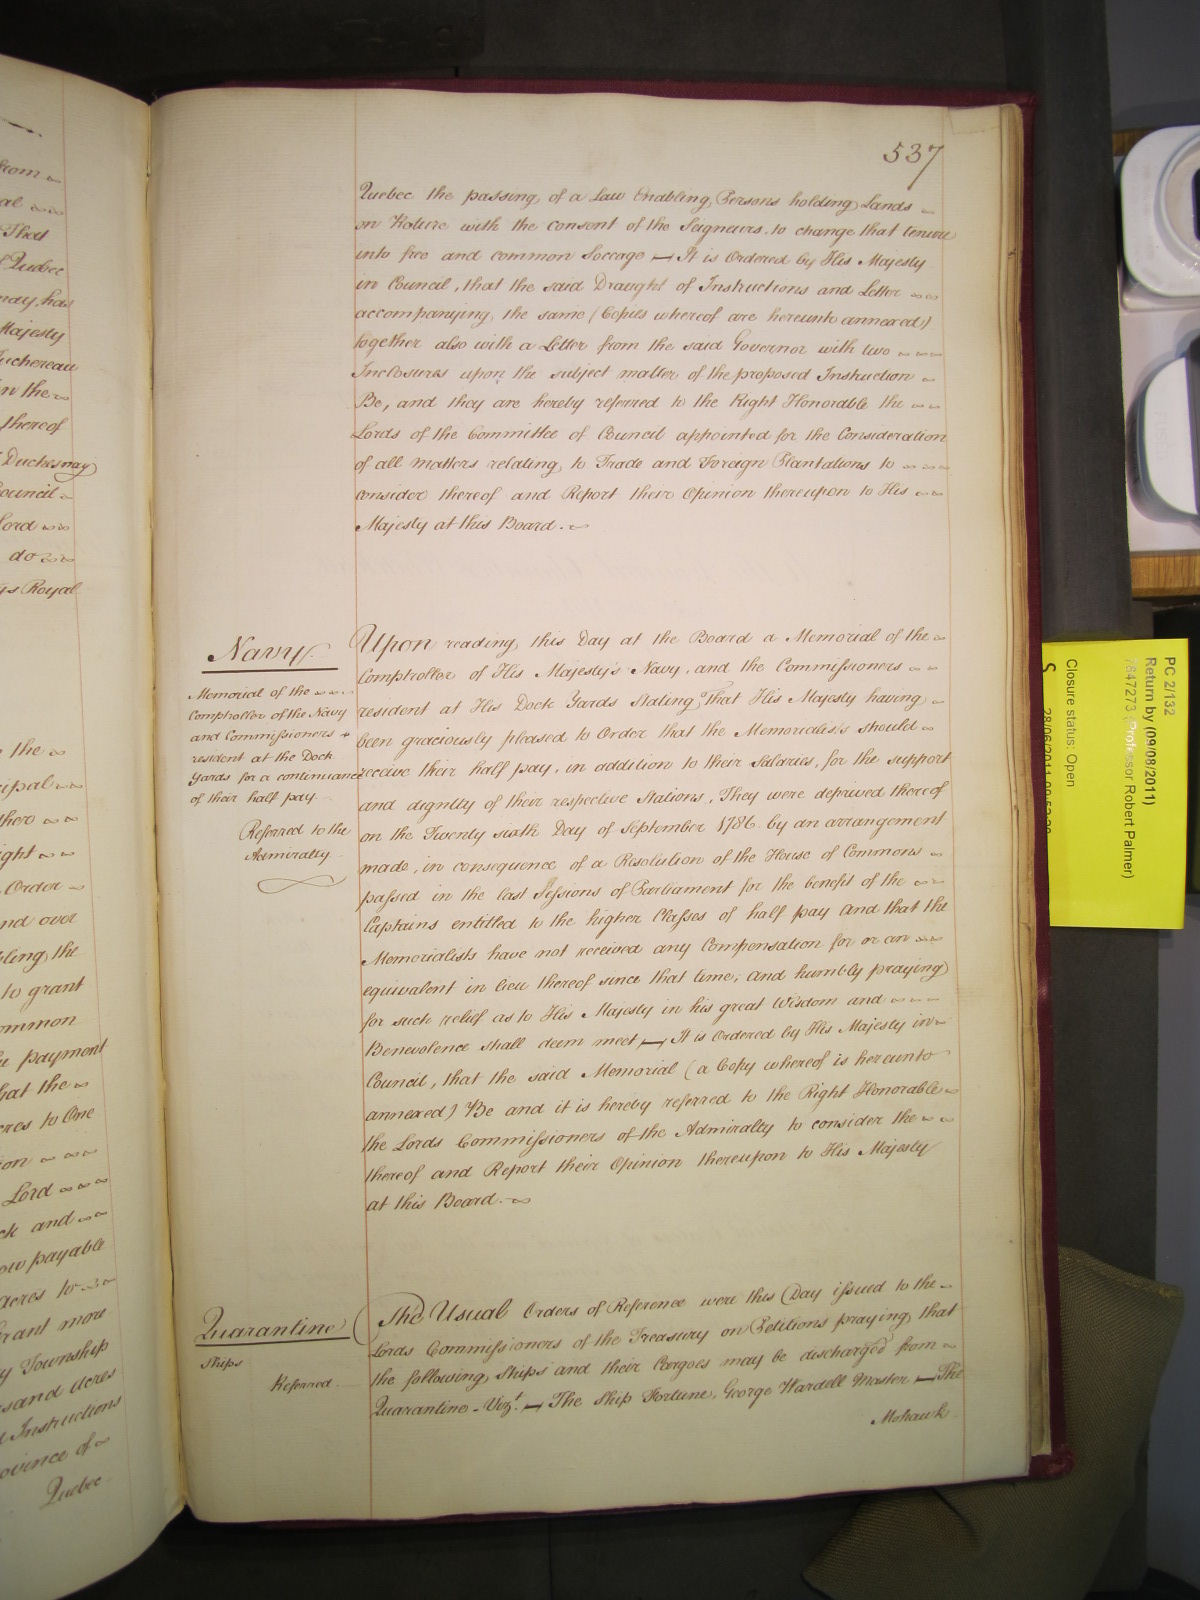 537
Quebec the passing of a Law Enabling Persons holding Lands
on Roture with the consent of the Seigneurs, to change that tenure
into free and common Soccage — It is Ordered by His Majesty
in Council, that the said Draught of Instructions and Letter
accompanying the same (Copies whereof are hereunto annexed)
together also with a Letter from the said Governor with two
Inclosures upon the subject matter of the proposed Instruction
Be, and they are hereby referred to the Right Honorable the
Lords of the Committee of Council appointed for the Consideration
of all matters relating to Trade and Foreign Plantations to
consider thereof and Report their Opinion thereupon to His
Majesty at this Board.
Navy
Memorial of the
Comptroller of the Navy
and Commissioners
resident at the Dock
Yards for a continuance
of their half pay
Referred to the
Admiralty
Upon reading this Day at the Board a Memorial of the
Comptroller of His Majesty's Navy, and the Commissioners
resident at His Dock Yards Stating, That His Majesty having
been graciously pleased to Order that the Memorialists should
receive their half pay, in addition to their Salaries, for the support
and dignity of their respective Stations, They were deprived thereof
on the Twenty sixth Day of September 1786 by an arrangement
made, in consequence of a Resolution of the House of Commons
passed in the last Sessions of Parliament for the benefit of the
Captains entitled to the higher Classes of half pay and that the
Memorialists have not received any Compensation for or an
equivalent in lieu thereof since that time, and humbly praying
for such relief as to His Majesty in his great Wisdom and
Benevolence shall deem meet — It is Ordered by His Majesty in
Council, that the said Memorial (a Copy whereof is hereunto
annexed) Be and it is hereby referred to the Right Honorable
the Lords Commissioners of the Admiralty to consider the
thereof and Report their Opinion thereupon to His Majesty
at this Board.
Quarantine
Ships
Referred
The Usual Orders of Reference were this Day issued to the
Lords Commissioners of the Treasury on Petitions praying that
the following Ships and their Cargoes may be discharged from
Quarantine - Vizt. — The Ship Fortune, George Wardell Master — The
Mohawk
from
That
Quebec
may, has
Majesty
Juchereau
in the
thereof
Duchesnay
Council
Lord
do
Royal
the
Order
and over
the
to grant
payment
that the
acres to One
Lord
and
payable
acres to
Grant more
Township
Acres
Instructions
Province of
Quebec
PC 2/132
Return by (09/08/2011)
7647273 (Professor Robert Palmer)
Closure status: Open
S